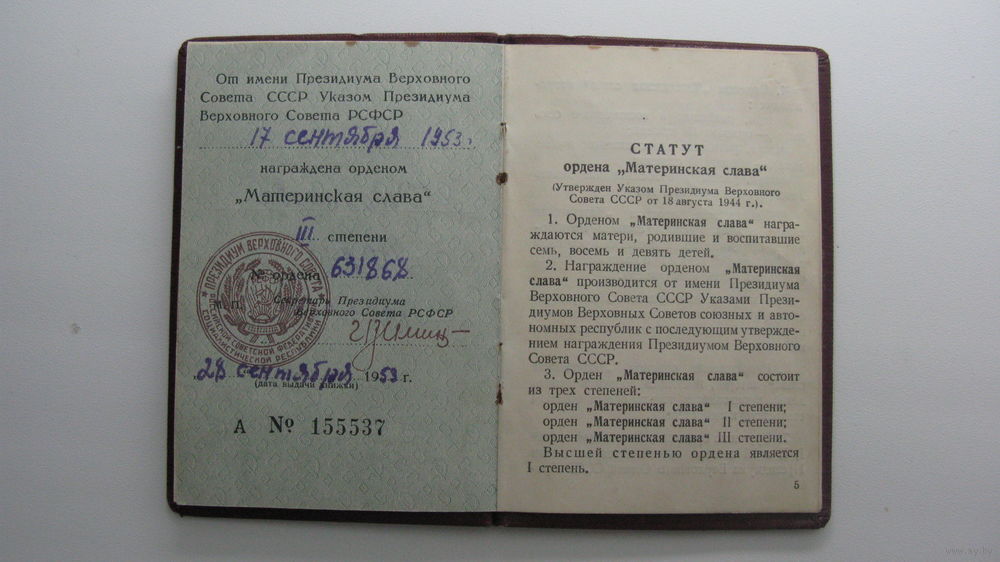 От имени Президиума Верховного
Совета СССР Указом Президиума
Верховного Совета РСФСР
17 сентября 1953 г.
награждена орденом
„Материнская слава“
III степени
№ ордена 631868
М. П.
Секретарь Президиума
Верховного Совета РСФСР
„28 сентября 1953 г.
(дата выдачи книжки)
А № 155537
ПРЕЗИДИУМ ВЕРХОВНОГО СОВЕТА
СОЦИАЛИСТИЧЕСКОЙ РЕСПУБЛИКИ
СТАТУТ
ордена „Материнская слава“
(Утвержден Указом Президиума Верховного
Совета СССР от 18 августа 1944 г.).
1. Орденом „Материнская слава“ награ-
ждаются матери, родившие и воспитавшие
семь, восемь и девять детей.
2. Награждение орденом „Материнская
слава“ производится от имени Президиума
Верховного Совета СССР Указами Прези-
диумов Верховных Советов союзных и авто-
номных республик с последующим утвержде-
нием награждения Президиумом Верховного
Совета СССР.
3. Орден „Материнская слава“ состоит
из трех степеней:
орден „Материнская слава“ I степени;
орден „Материнская слава“ II степени;
орден „Материнская слава“ III степени.
Высшей степенью ордена является
I степень.
5
www.ay.by